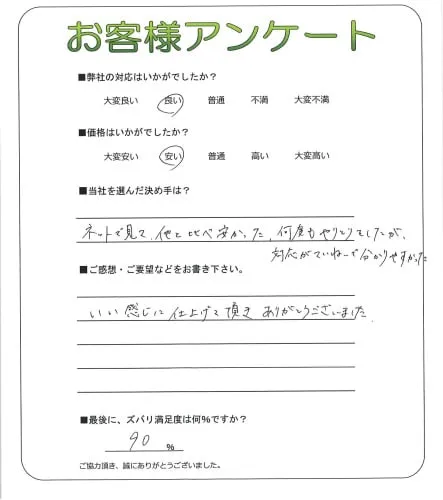 お客様アンケート
■弊社の対応はいかがでしたか？
大変良い 良い 普通 不満 大変不満
■価格はいかがでしたか？
大変安い 安い 普通 高い 大変高い
■当社を選んだ決め手は？
ネットで見て、他と比べ安かった、何度もやりとりをしたが、
対応がていねいで分かりやすかった
■ご感想・ご要望などをお書き下さい。
いい感じに仕上げて頂き ありがとうございました
■最後に、ズバリ満足度は何%ですか？
90 %
ご協力頂き、誠にありがとうございました。